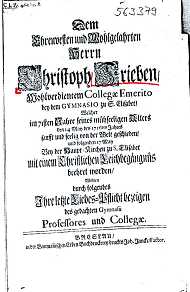 563279
Dem
Ehrenvesten und Wohlgelahrten
Herrn
Christoph Krieben/
Wohlverdientem Collegæ Emerito
bey dem GYMNASIO zu S. Elisabet/
Welcher
im 78sten Jahre seines mühseeligen Alters
den 14 May des Jahres
sanfft und seelig von der Welt geschieden/
und folgenden 17 May
Bey der Haupt-Kirchen zu S. Elisabet
mit einem Christlichen Leichbegängnüs
beehret worden/
Wolten
durch folgendes
Ihre letzte Liebes-Pflicht bezeigen
des gedachten Gymnasii
Professores und Collegæ.
BRESLAU/
in der Baumannischen Erben Buchdruckerey druckts Joh. Janck/Factor.